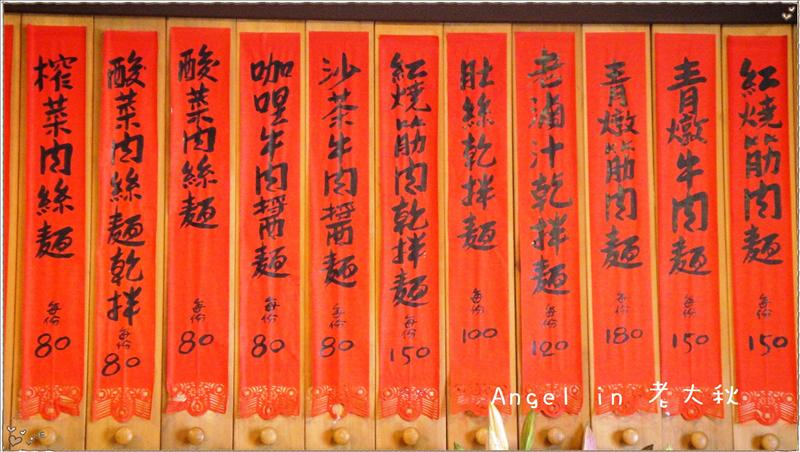 紅燒筋肉麵 每份 150
青燉牛肉麵 每份 150
青燉筋肉麵 每份 180
老滷汁乾拌麵 每份 120
肚絲乾拌麵 每份 100
紅燒筋肉乾拌麵 每份 150
沙茶牛肉醬麵 每份 80
咖哩牛肉醬麵 每份 80
酸菜肉絲麵 每份 80
酸菜肉絲麵乾拌 每份 80
榨菜肉絲麵 每份 80
Angel in 老大秋